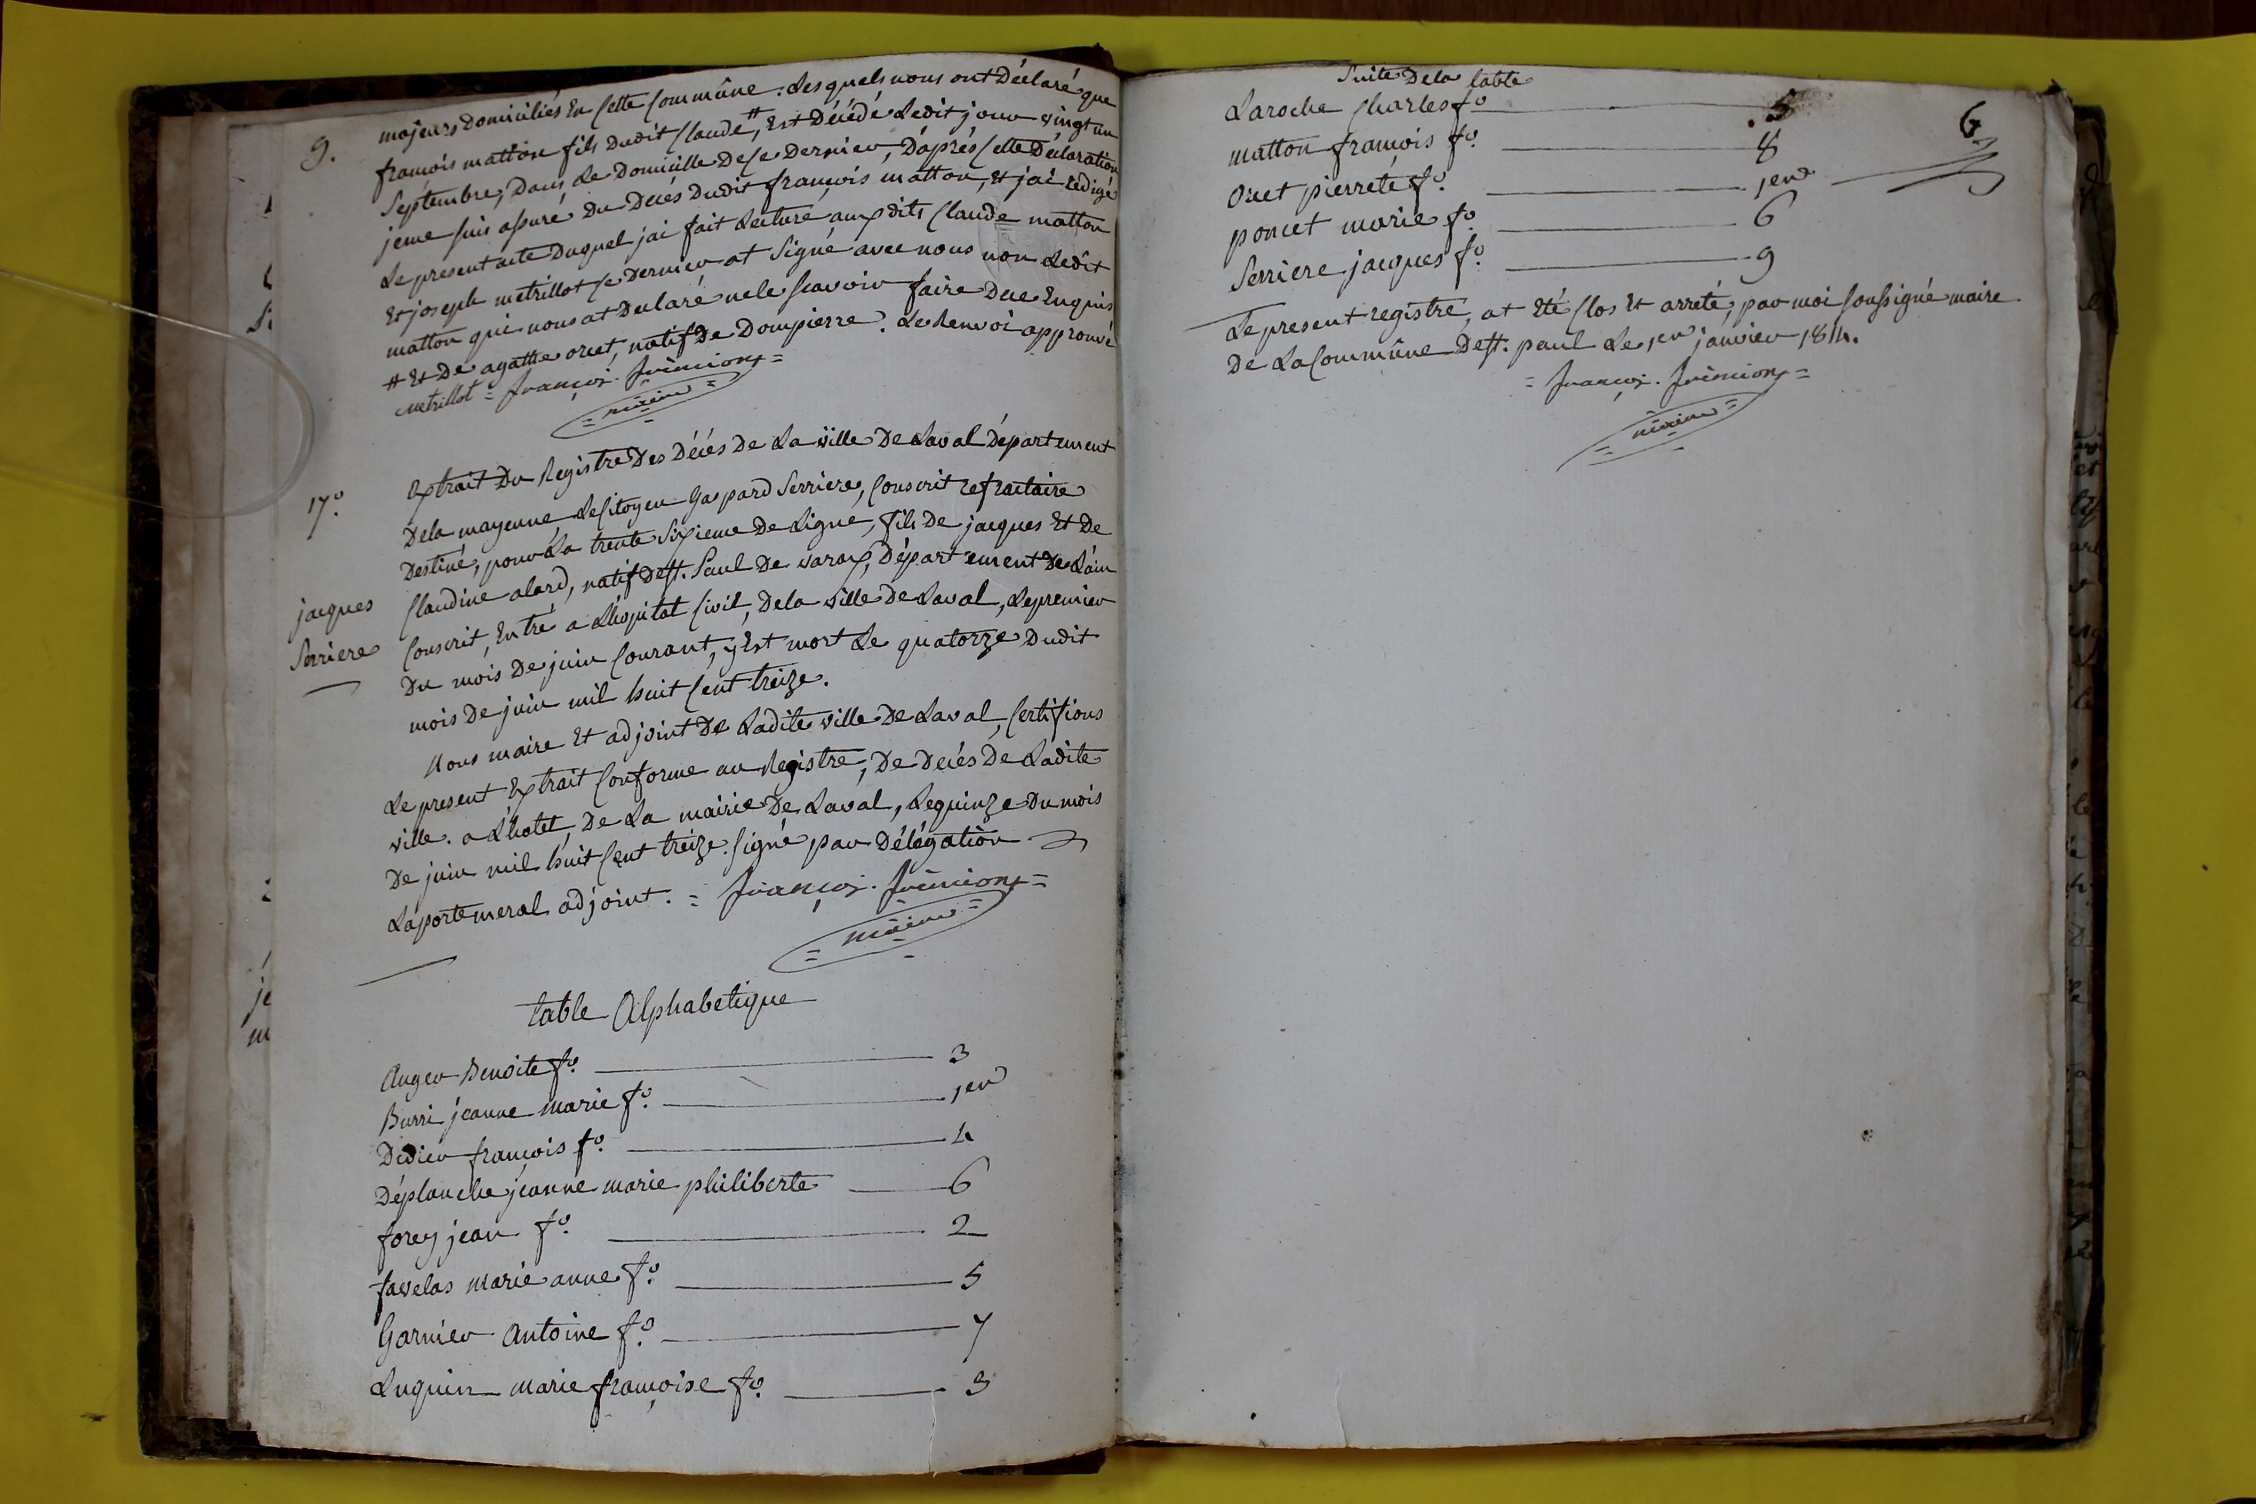 9.
majeurs Domiciliés En Cette Commúne. Les quels nous ont Déclaré que
françois matton fils Dudit Claude #, Est Décédé Ledit jour vingt un
Septembre, Dans Le Domicille De Ce Dernier, D'après Cette Déclaration
je me suis assuré Du Décés Dudit françois matton, Et j'ai Rédigé
Le present acte Duquel j'ai fait Lecture aux dits Claude matton
Et joseph metrillot Ce Dernier at Signé avec nous non Ledit
matton qui nous at Déclaré ne le Scavoir faire De ce Enquis
# Et De agathe oret, natif De Dompierre. Le Renvoi approuvé
metrillot = françoi. = 
= maire =
17.º
jacques
Serriere
Extrait Du Registre Des Décés De La ville De Laval Département
De la mayenne, Le Citoyen Gaspard Serriere, Conscrit refractaire
Destiné, pour La trente Sixieme De Ligne, fils De jacques Et De
Claudine alard, natif De St. Paul De varax, Département De L'áin
Conscrit, Entré a L'hópital Civil, De la ville De Laval, Le premier
Du mois De juin Courant, y Est mort Le quatorze Dudit
mois De juin mil huit Cent treize.
Nous maire Et adjoint De Ladite ville De Laval, Certifions
Le present Extrait Conforme au Registre, De Decés De Ladite
ville. a L'hotel, De La mairie De Laval, Le quinze Du mois
De juin mil huit Cent treize. Signé par Délégation
Laporte meral adjoint. = françoi. =
= maire =
table Alphabetique
Auger Benoite fº. 3
Burri jeanne marie fº. 1er
Didier françois fº. 4
Déplanche jeanne marie philiberte 6
forey jean fº. 2
favelas marie anne fº. 5
Garnier Antoine fº. 7
Luquin marie françoise fº. 3
Suite De la table
Laroche Charles fº 5
6
matton françois fº. 8
Oret pierrete fº. 1er
poncet marie fº. 6
Serriere jacques fº. 9
Le present registre, at Eté Clos Et arreté, par moi Soussigné maire
De La Commúne De St. paul Le 1er janvier 1814.
= françoi. =
= maire =